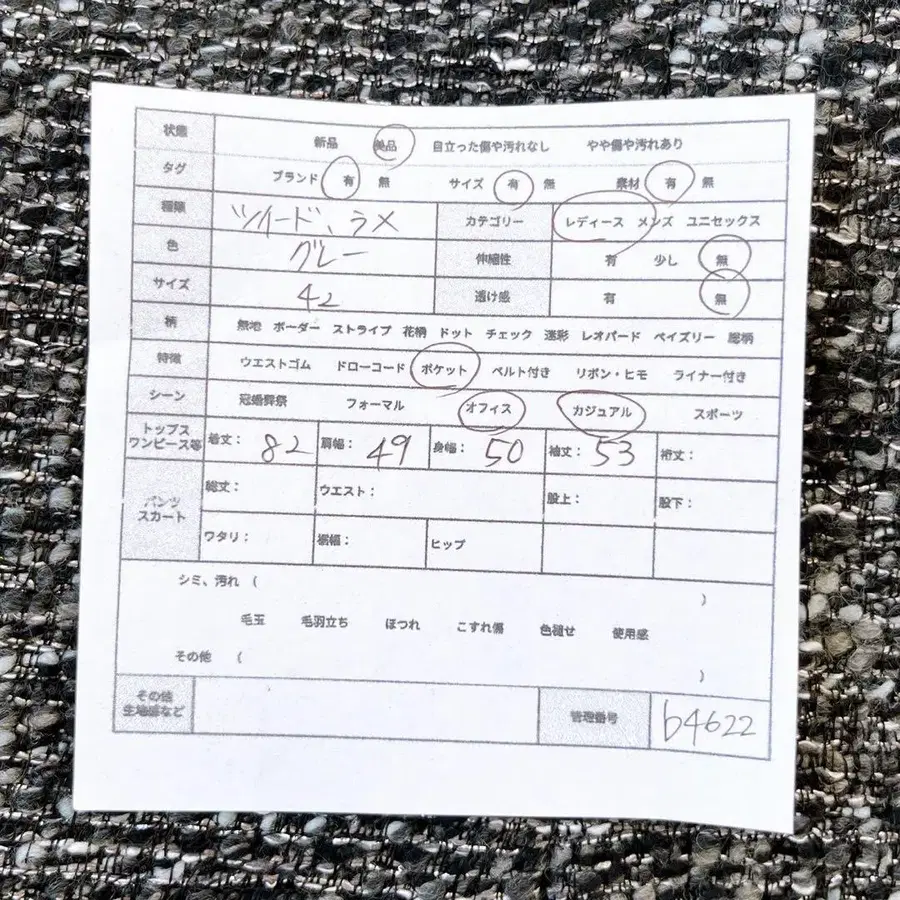 状態 新品 美品 目立った傷や汚れなし やや傷や汚れあり
タグ ブランド 有 無 サイズ 有 無 素材 有 無
種類 ツイード、ラメ カテゴリー レディース メンズ ユニセックス
色 グレー 伸縮性 有 少し 無
サイズ 42 透け感 有 無
柄 無地 ボーダー ストライプ 花柄 ドット チェック 迷彩 レオパード ペイズリー 総柄
特徴 ウエストゴム ドローコード ポケット ベルト付き リボン・ヒモ ライナー付き
シーン 冠婚葬祭 フォーマル オフィス カジュアル スポーツ
トップス
ワンピース等 着丈: 82 肩幅: 49 身幅: 50 袖丈: 53 裄丈:
パンツ
スカート 総丈: ウエスト: 股上: 股下:
ワタリ: 裾幅: ヒップ
シミ、汚れ ( )
毛玉 毛羽立ち ほつれ こすれ傷 色褪せ 使用感
その他 ( )
その他
生地感など 管理番号 b4622